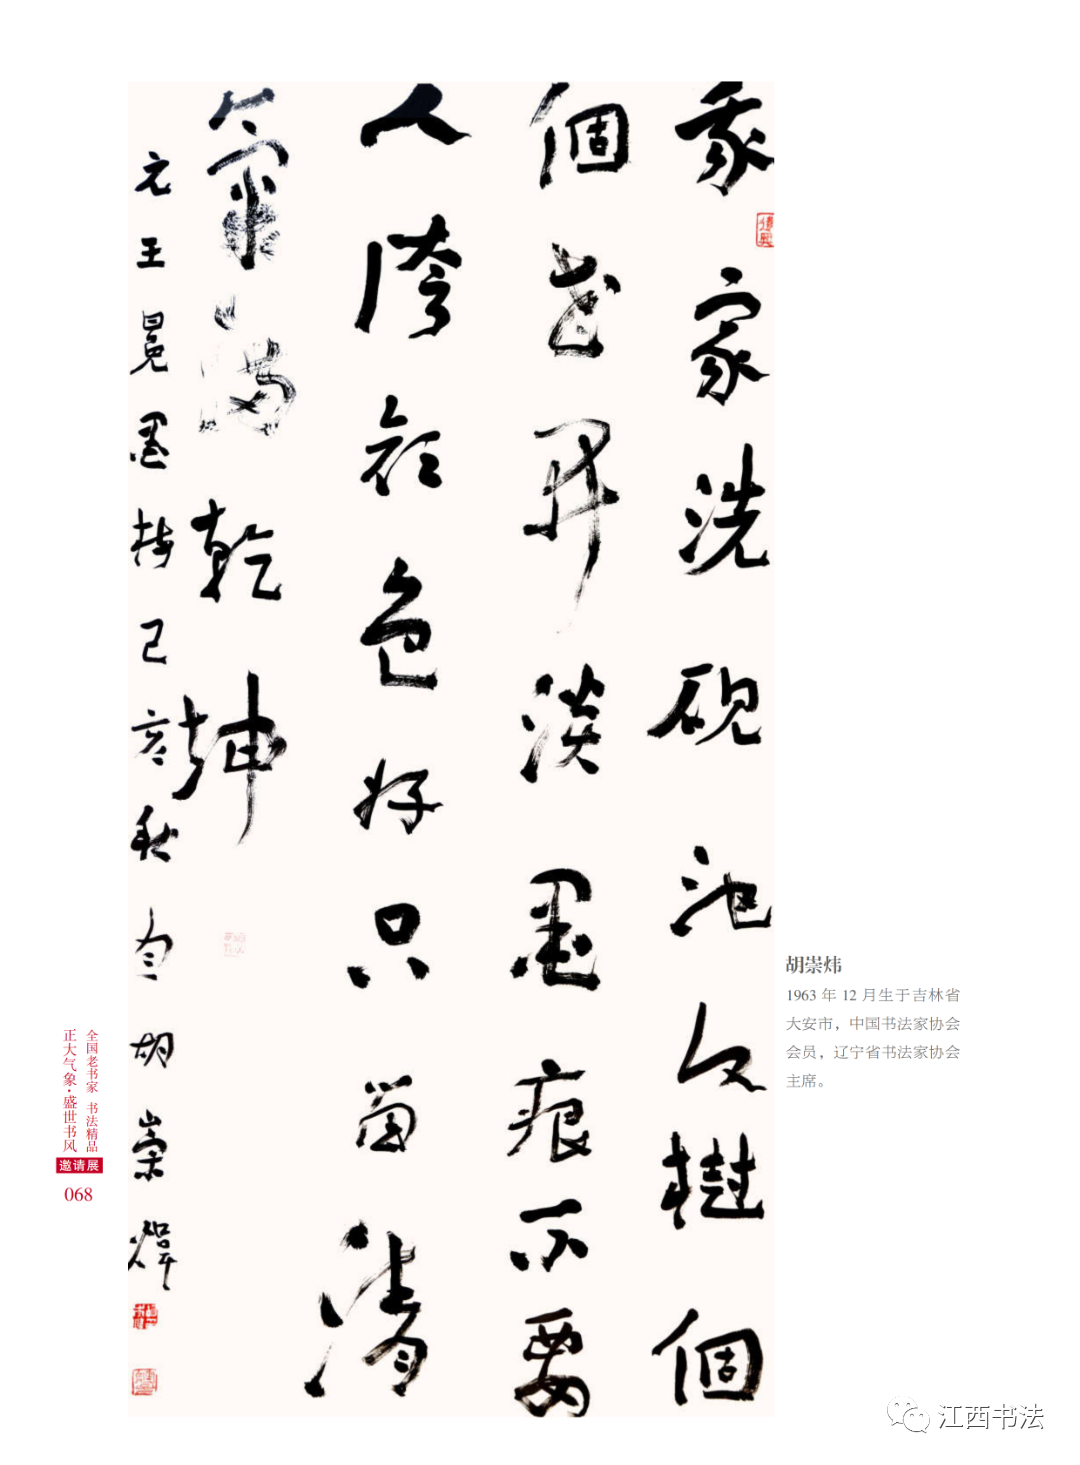 我家洗硯池頭樹個
個花開淡墨痕不要
人誇顏色好只留清
氣滿乾坤
元王冕墨梅己亥秋胡崇煒
胡崇炜
1963 年 12 月生于吉林省
大安市，中国书法家协会
会员，辽宁省书法家协会
主席。
全国老书家 书法精品
正大气象·盛世书风
邀请展
068
江西书法